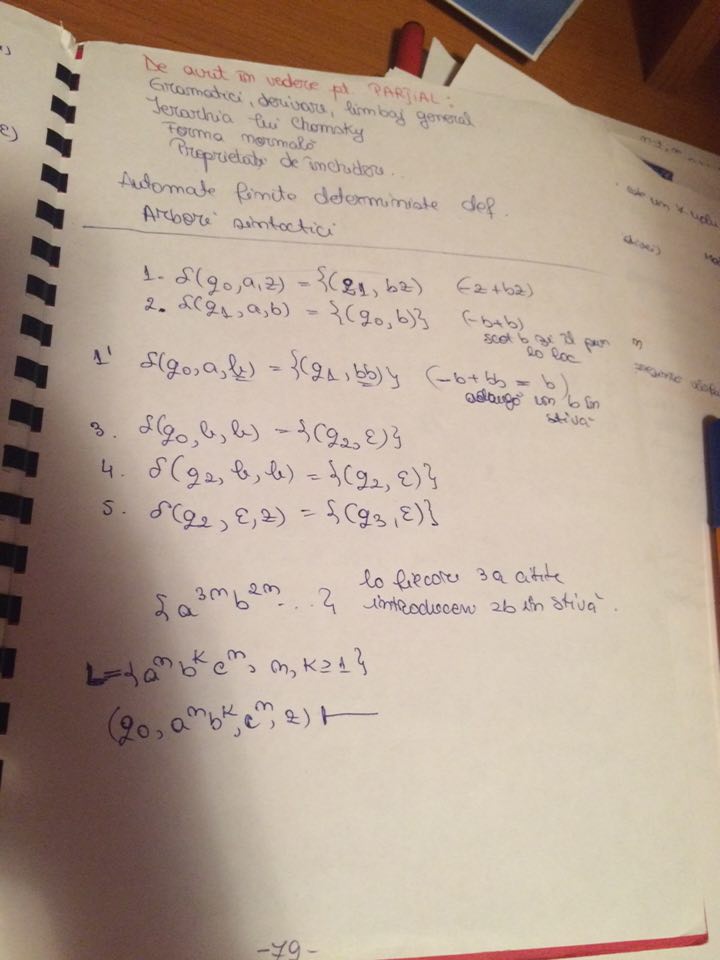 De avut în vedere pt. PARȚIAL:
Gramatici, derivare, limbaj general
Ierarhia lui Chomsky
Forma normală
Proprietăți de închidere..
Automate finite deterministe def.
Arbori sintactici
1. δ(q0, a, z) = {(q1, bz)} (-z+bz)
2. δ(q1, a, b) = {(q0, b)} (-b+b)
scot b și îl pun
la loc
1' δ(q0, a, b) = {(q1, bb)} (-b+bb = b)
adaugă un b în
stivă
3. δ(q0, b, b) = {(q2, ε)}
4. δ(q2, b, b) = {(q2, ε)}
5. δ(q2, ε, z) = {(q3, ε)}
{a^{3n} b^{2n} ...} la fiecare 3a citite
introducem 2b în stivă.
L={a^n b^k c^n, n, k≥1}
(q0, a^n b^k, c^n, z) ⊢
-79-